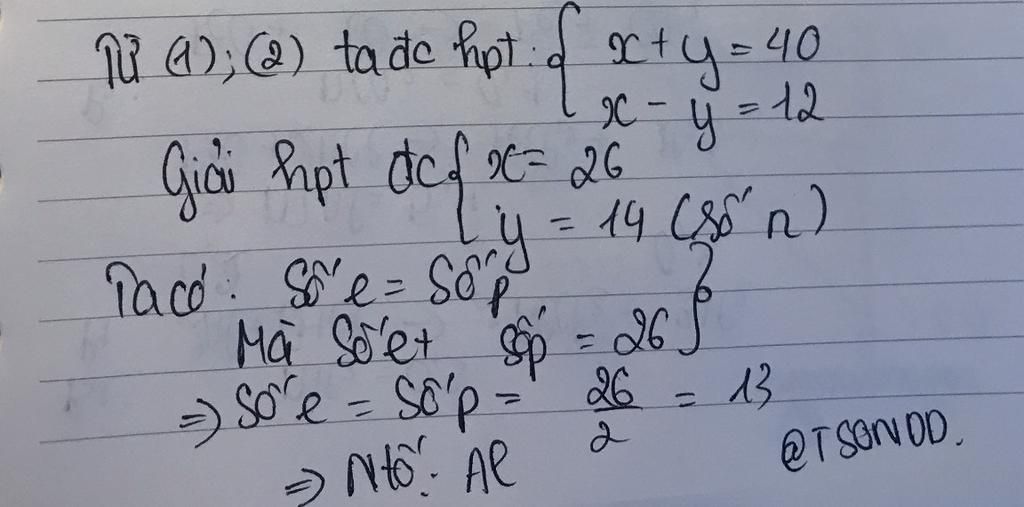 Từ (1); (2) ta đc hpt: { x + y = 40
x - y = 12
Giải hpt đc { x = 26
y = 14 (số n)
Ta có: Số e = Số p
Mà Số e + Số p = 26 }
=> Số e = Số p = 26/2 = 13
@TSONDD.
=> Ntố: Al